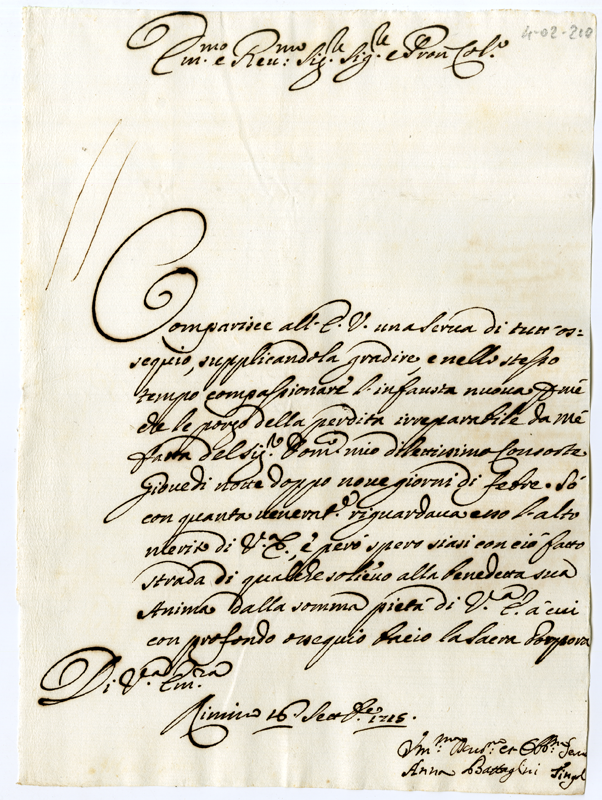 4-02-210
Em.mo e Reu.mo Sig.re Sig.re e Pron Col.o
Comparisce all' E. V. una serua di tutt' os=
sequio, supplicandola gradire, e nello stesso
tempo compassionare l' infausta nuoua, che
le porgo della perdita irreparabile da mè
fatta del Sig.r Dom.co mio dilettissimo Consorte
Giouedi notte doppo noue giorni di febre. Sò
con quanta venerat.e riguardaua esso l' alto
merito di V.a E., e però spero siasi con ciò fatto
strada di qualche solieuo alla benedetta sua
Anima dalla somma pietà di V.a E. à cui
con profondo ossequio bacio la sacra Porpora
Di V.a Em.za
Rimino 16 Sett.bre 1715.
Vm.ma Deu.ma et Obb.ma Serua
Anna Battaglini